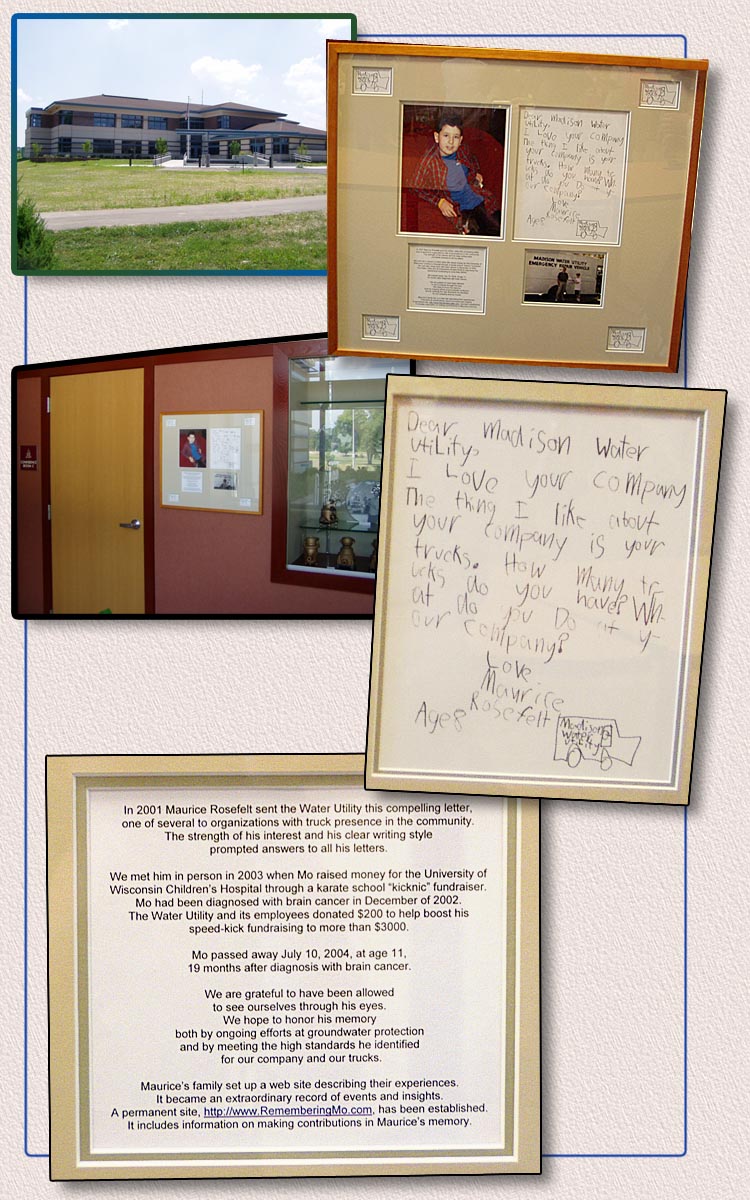 Dear Madison Water
utility.
I Love your company
The thing I like about
your company is your
trucks. How many tr
ucks do you have? Wh
at do you Do at y-
our company?
Love
Maurice
Rosefelt
Age 8
MADISON WATER UTILITY
EMERGENCY REPAIR VEHICLE
Dear Madison Water
utiLity.
I Love your company
The thing I like about
your company is your
trucks. How many tr
ucks do you have? Wh
at do you Do at y-
our company?
Love
Maurice
Rosefelt
Age 8
Madison
Water
utiLity
In 2001 Maurice Rosefelt sent the Water Utility this compelling letter,
one of several to organizations with truck presence in the community.
The strength of his interest and his clear writing style
prompted answers to all his letters.
We met him in person in 2003 when Mo raised money for the University of
Wisconsin Children's Hospital through a karate school “kicknic” fundraiser.
Mo had been diagnosed with brain cancer in December of 2002.
The Water Utility and its employees donated $200 to help boost his
speed-kick fundraising to more than $3000.
Mo passed away July 10, 2004, at age 11,
19 months after diagnosis with brain cancer.
We are grateful to have been allowed
to see ourselves through his eyes.
We hope to honor his memory
both by ongoing efforts at groundwater protection
and by meeting the high standards he identified
for our company and our trucks.
Maurice's family set up a web site describing their experiences.
It became an extraordinary record of events and insights.
A permanent site, http://www.RememberingMo.com, has been established.
It includes information on making contributions in Maurice's memory.